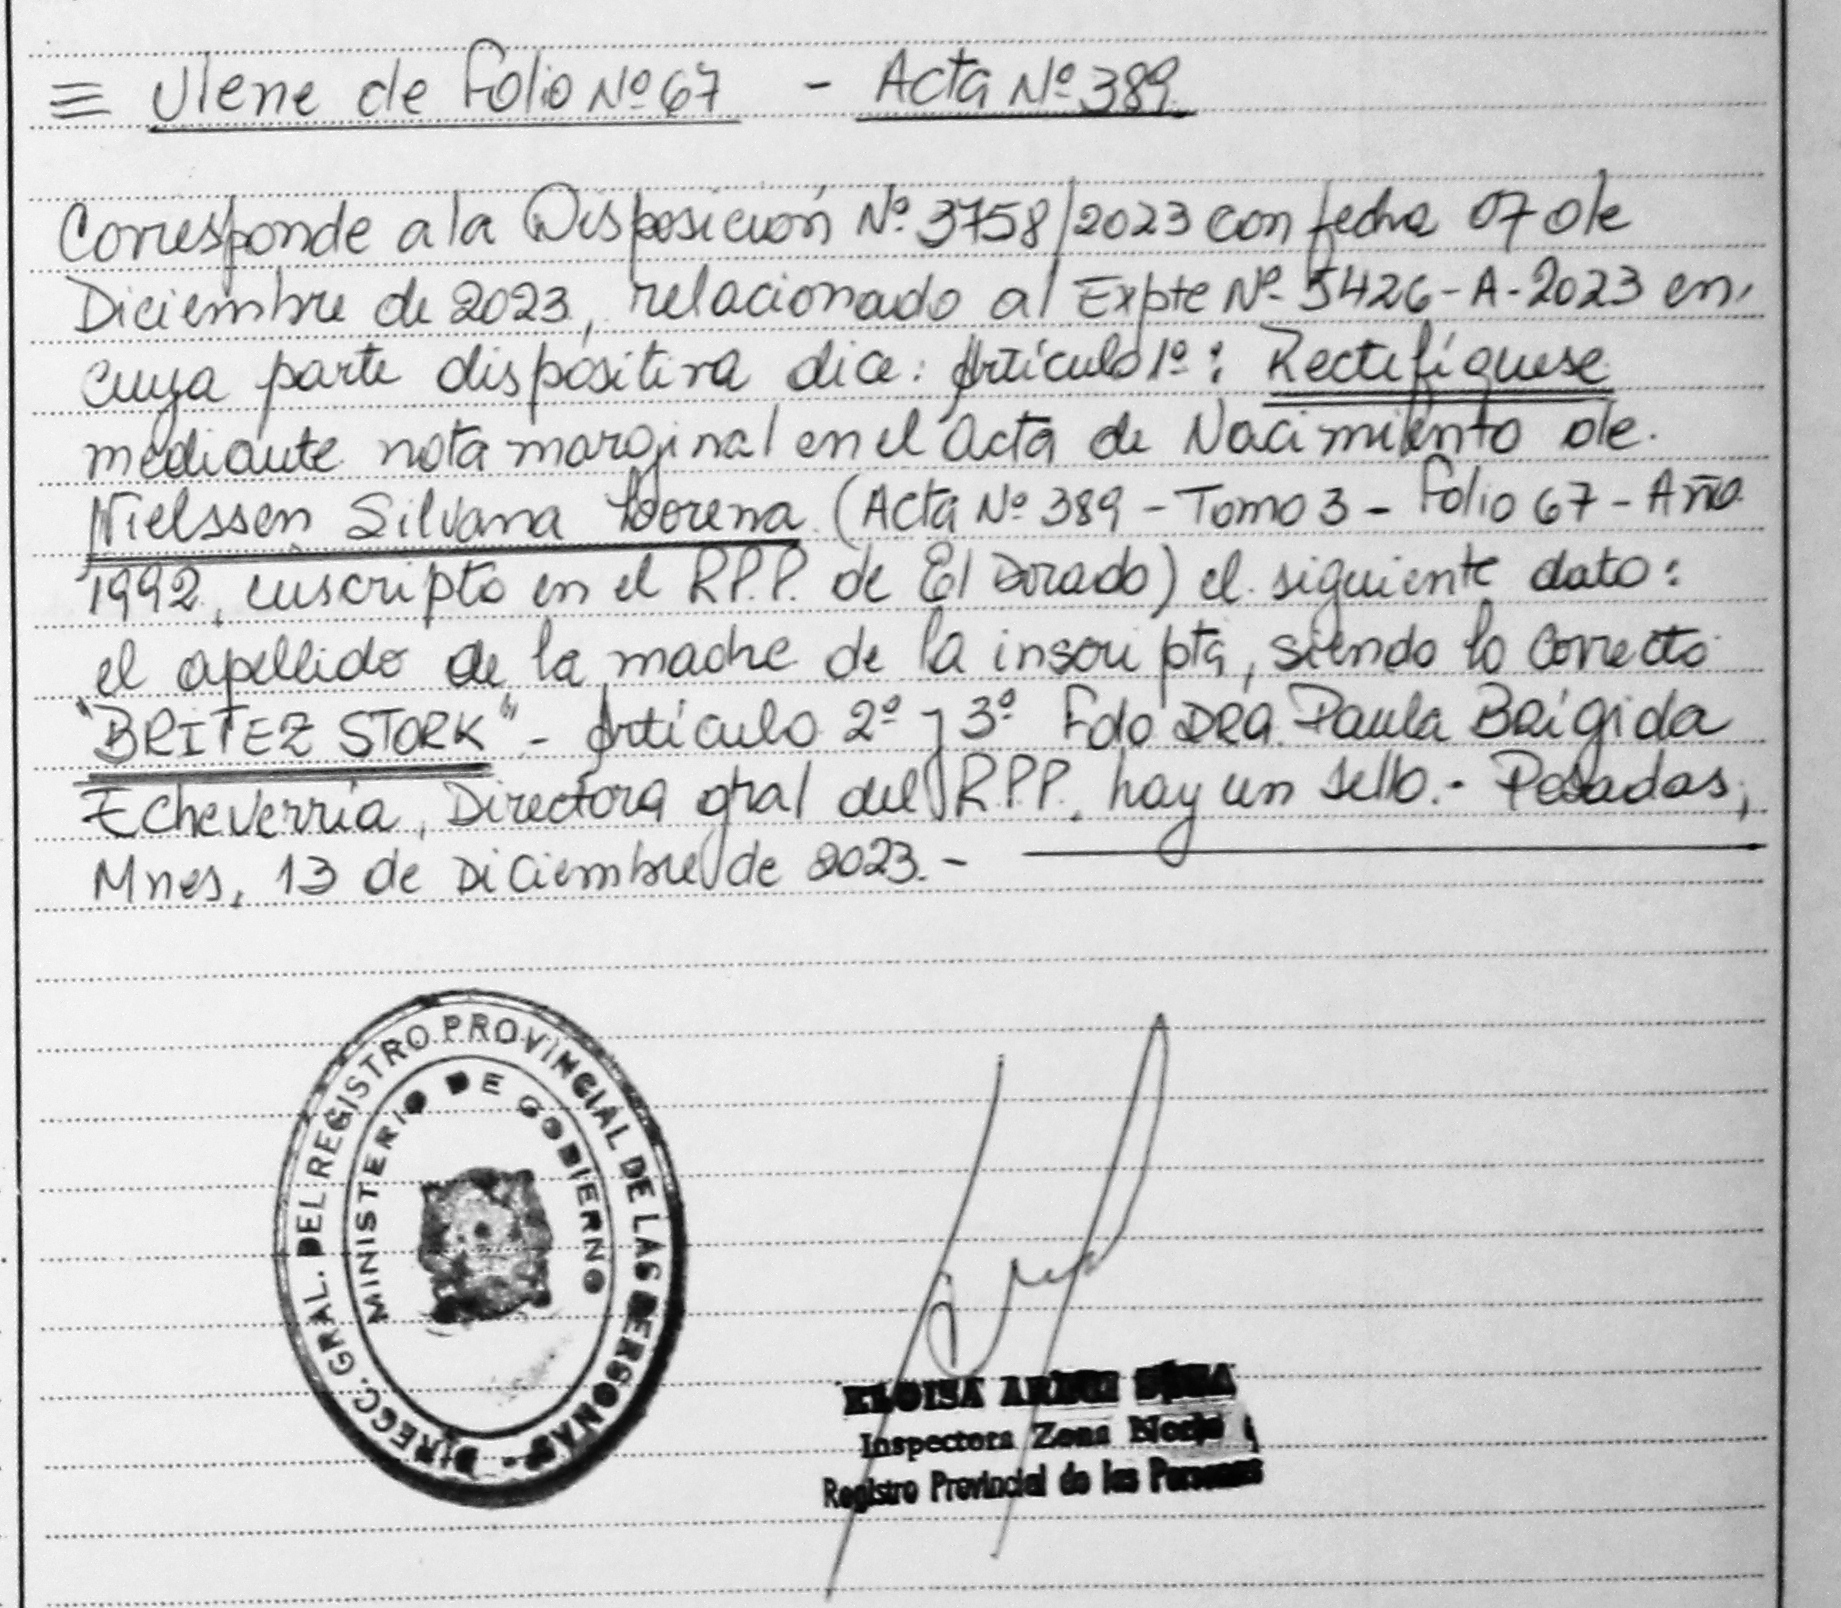 ≡ Viene de Folio Nº 67 - Acta Nº 389
Corresponde a la Disposición Nº 3758/2023 con fecha 07 de
Diciembre de 2023, relacionado al Expte Nº 5426-A-2023 en
cuya parte dispositiva dice: Artículo 1º: Rectifíquese
mediante nota marginal en el Acta de Nacimiento de
Nielssen Silvana Lorena (Acta Nº 389 - Tomo 3 - Folio 67 - Año
1992, inscripto en el R.P.P. de El Dorado) el siguiente dato:
el apellido de la madre de la inscripta, siendo lo correcto
"BRITEZ STORK" - Artículo 2º y 3º Fdo DRA. Paula Brígida
Echeverría, Directora gral del R.P.P. hay un sello.- Posadas,
Mnes, 13 de Diciembre de 2023.-
DIRECC. GRAL. DEL REGISTRO PROVINCIAL DE LAS PERSONAS -
MINISTERIO DE GOBIERNO
ELOISA
Inspectora Zona Norte
Registro Provincial de las Personas